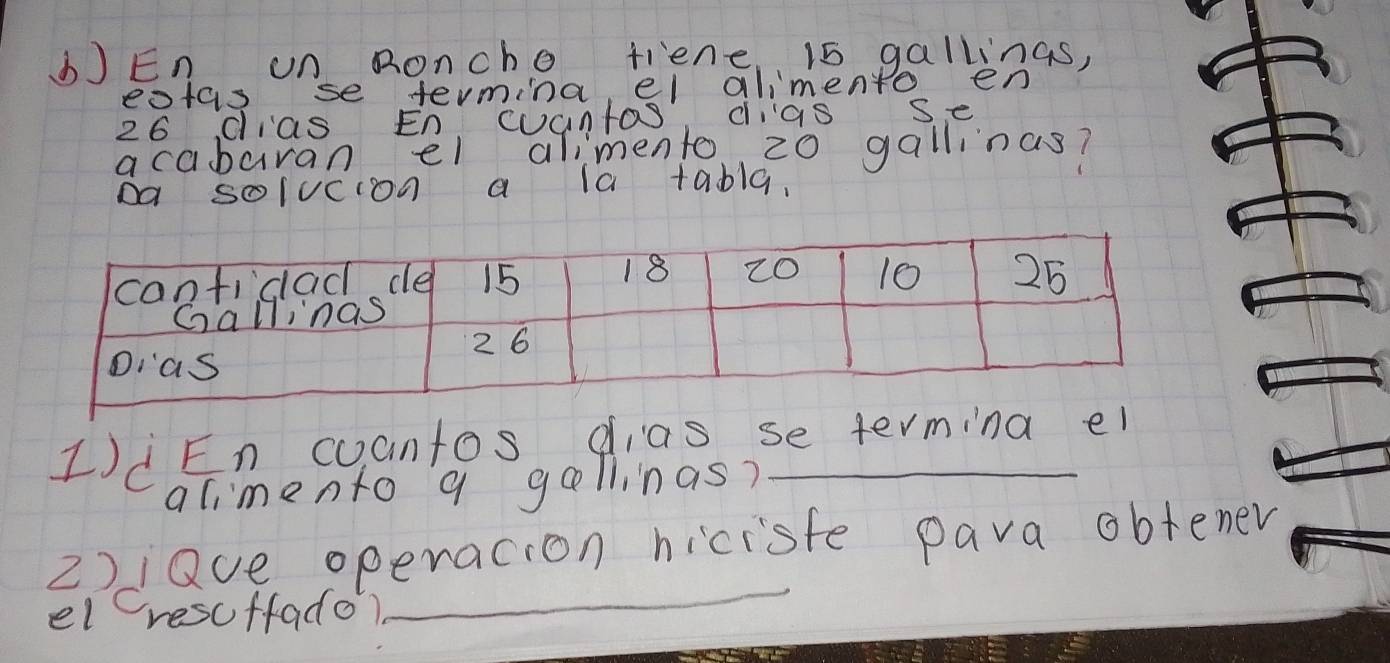 b) En un Roncho tiene 15 gallinas,
estas se termina el alimento en
26 dias En cuantos dias se
acabaran el alimento 20 gallinas?
Da solucion a la tabla.
cantidad de Gallinas 15 18 20 10 25
Dias 26
1) ¿En cuantos dias se termina el
alimento 9 gallinas? ______
2) ¿Que operacion hiciste para obtener
el resultado? ______